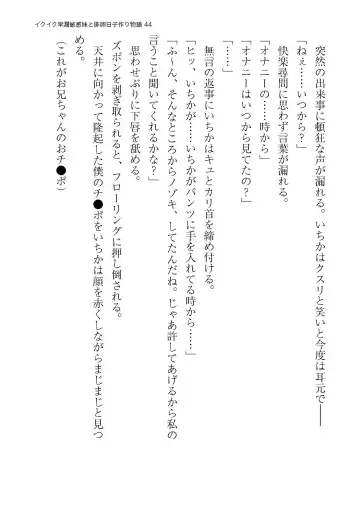 イクイク早漏敏感妹と排卵日子作り物語 44
突然の出来事に頓狂な声が漏れる。いちかはクスリと笑いと今度は耳元で――
「ねぇ……いつから?」
快楽尋問に思わず言葉が漏れる。
「オナニーの……時から」
「オナニーはいつから見てたの?」
「……」
無言の返事にいちかはキュとカリ首を締め付ける。
「ヒッ、いちかが……いちかがパンツに手を入れてる時から……」
「ふ~ん、そんなところからノゾキ、してたんだね。じゃあ許してあげるから私の
言うこと聞いてくれるかな?」
思わせぶりに下唇を舐める。
ズボンを剥ぎ取られると、フローリングに押し倒される。
天井に向かって隆起した僕のチ●ポをいちかは顔を赤くしながらまじまじと見つ
める。
(これがお兄ちゃんのおチ●ポ)